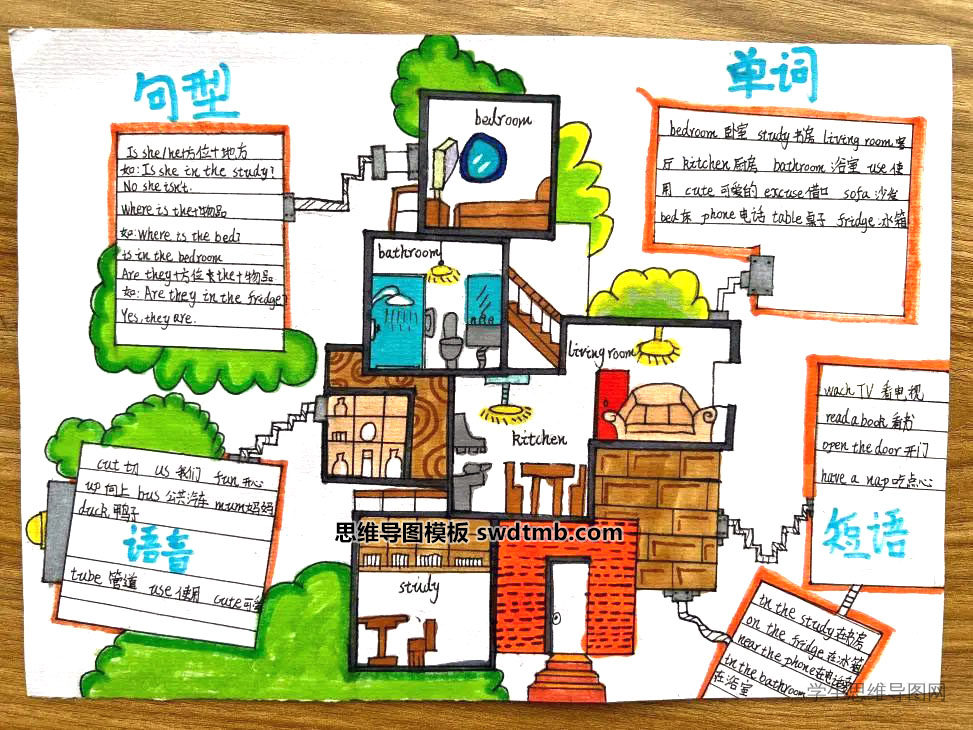 句型
Is she/he+方位+地方
如: Is she in the study?
No she isn't.
Where is the+物品
如: Where is the bed?
is in the bedroom
Are they+方位+the+物品
如: Are they in the fridge?
Yes, they are.
单词
bedroom 卧室 study 书房 living room 客
厅 kitchen 厨房 bathroom 浴室 use 使
用 cute 可爱的 excuse 借口 sofa 沙发
bed 床 phone 电话 table 桌子 fridge 冰箱
bedroom
bathroom
living room
kitchen
study
wach TV 看电视
read a book 看书
open the door 开门
have a nap 吃点心
短语
in the study 在书房
on the fridge 在冰箱
near the phone 在电话旁
in the bathroom
在浴室
cut 切 us 我们 fun 开心
up 向上 bus 公共汽车 mum 妈妈
duck 鸭子
语音
tube 管道 use 使用 cute 可爱
思维导图模板 swdtmb.com
学生思维导图网